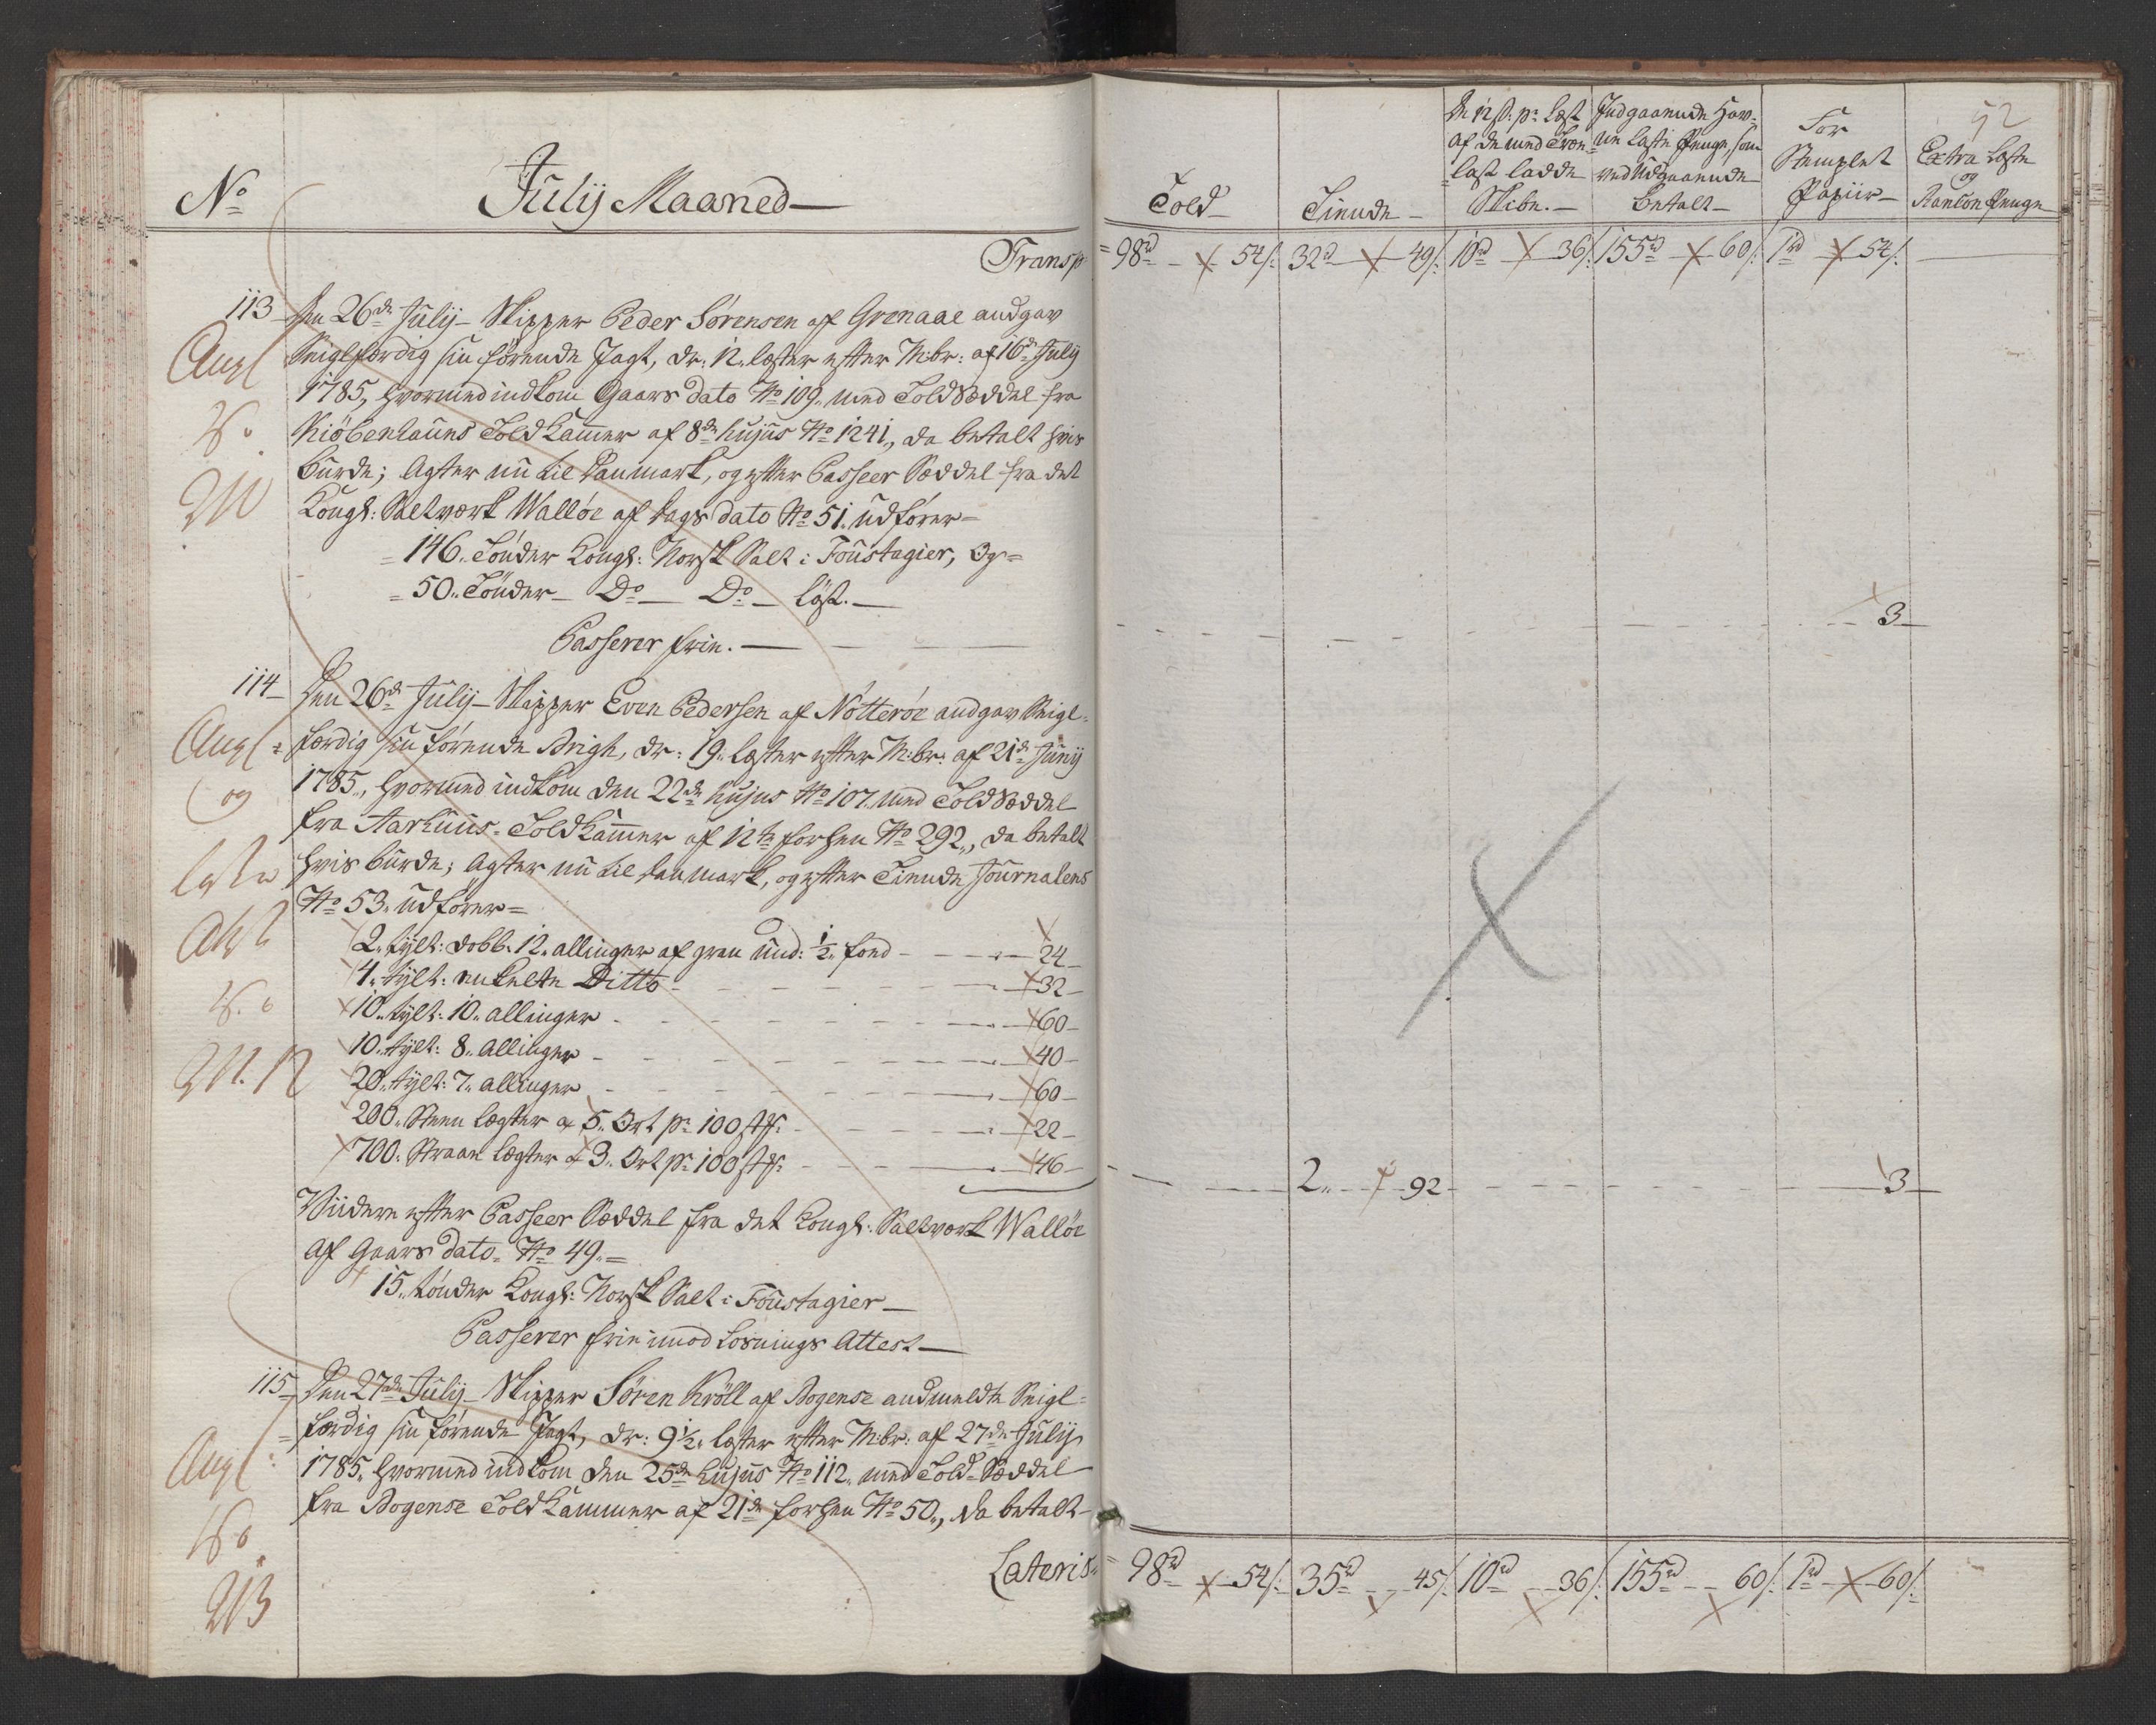 No
Julij Maaned
Transp
113 Den 26de Julij Skipper Peder Sörensen af Grenaae andgav
Seiglfærdig sin förende Jagt, dr: 12. læster efter M:br: af 16de Julij
1785, hvormed indkom Gaars dato No 109. med Told Sæddel fra
Kiöbenhauns Told Kammer af 8de hujus No 1241, da betalt hvis
burde; Agter nu til Danmark, og efter Passeer Sæddel fra det
Kongl: Saltværk Wallöe af Dags dato No 51. udförer=
146. Tönder Kongl: Norsk Salt i Foustagier, Og=
50. Tönder Do Do löst.
Passerer frie.
114 Den 26de Julij Skipper Even Pedersen af Nötteröe andgav Seigl-
færdig sin förende Brigh, dr: 19. læster efter M:br: af 21de Junij
1785, hvormed indkom den 22de hujus No 107. med Told Sæddel
fra Aarhuus Told Kammer af 12te forhen No 292, da betalt
hvis burde; Agter nu til Danmark, og efter Tiende Journalens
No 53. udförer=
2. tylt: dobb. 12. allinger af gran und: ½ fond 24
4. tylt: enkelte Ditto 32
10. tylt: 10. allinger 60
10. tylt: 8. allinger 40
20. tylt: 7. allinger 60
200. Steen Lægter a 5. Ort pr 100 stk: 22
700. Straae Lægter a 3. Ort pr 100 stk: 46
Viidere efter Passeer Sæddel fra det Kongl: Saltværk Wallöe
af Gaars dato No 49.=
15. tönder Kongl: Norsk Salt i Foustagier
Passerer frie imod Losnings Attest
115 Den 27de Julij Skipper Sören Kröll af Bogense andmeldte Seigl-
færdig sin förende Jagt, dr: 9½. læster efter M:br: af 27de Julij
1785. hvormed indkom den 25de hujus No 112. med Told Sæddel
fra Bogense Told Kammer af 21de forhen No 50., da betalt
Lateris
52
Told
Tiende
De 12 s: pr Læst af de med Træ-last ladde Skibe.
Indgaaende Hav-ne Læste Penge, som ved Udgaaende betalt
For Stemplet Papiir
Extra Læste og Ranzon Penge
98rd 54s: 32rd 49s: 10rd 36s: 155rd 60s: 1rd 54s:
3
2. 92 3
98rd 54s: 35rd 45s: 10rd 36s: 155rd 60s: 1rd 60s: